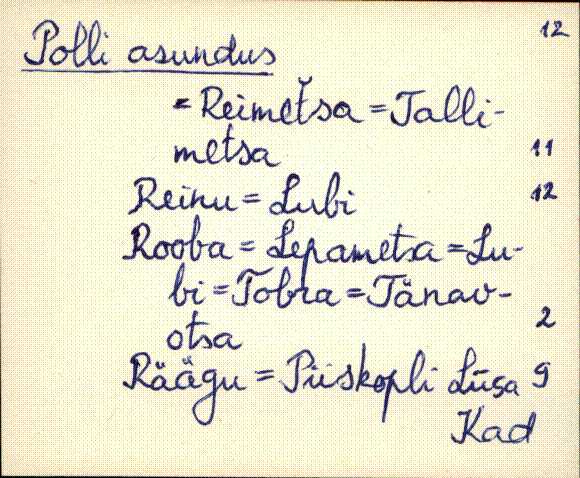 12
Polli asundus
= Reimetsa = Talli-
metsa 11
Reinu = Lubi 12
Rooba = Lepametsa = Lu-
bi = Tobra = Tänav-
otsa 2
Räägu = Piiskopli 9
Kad